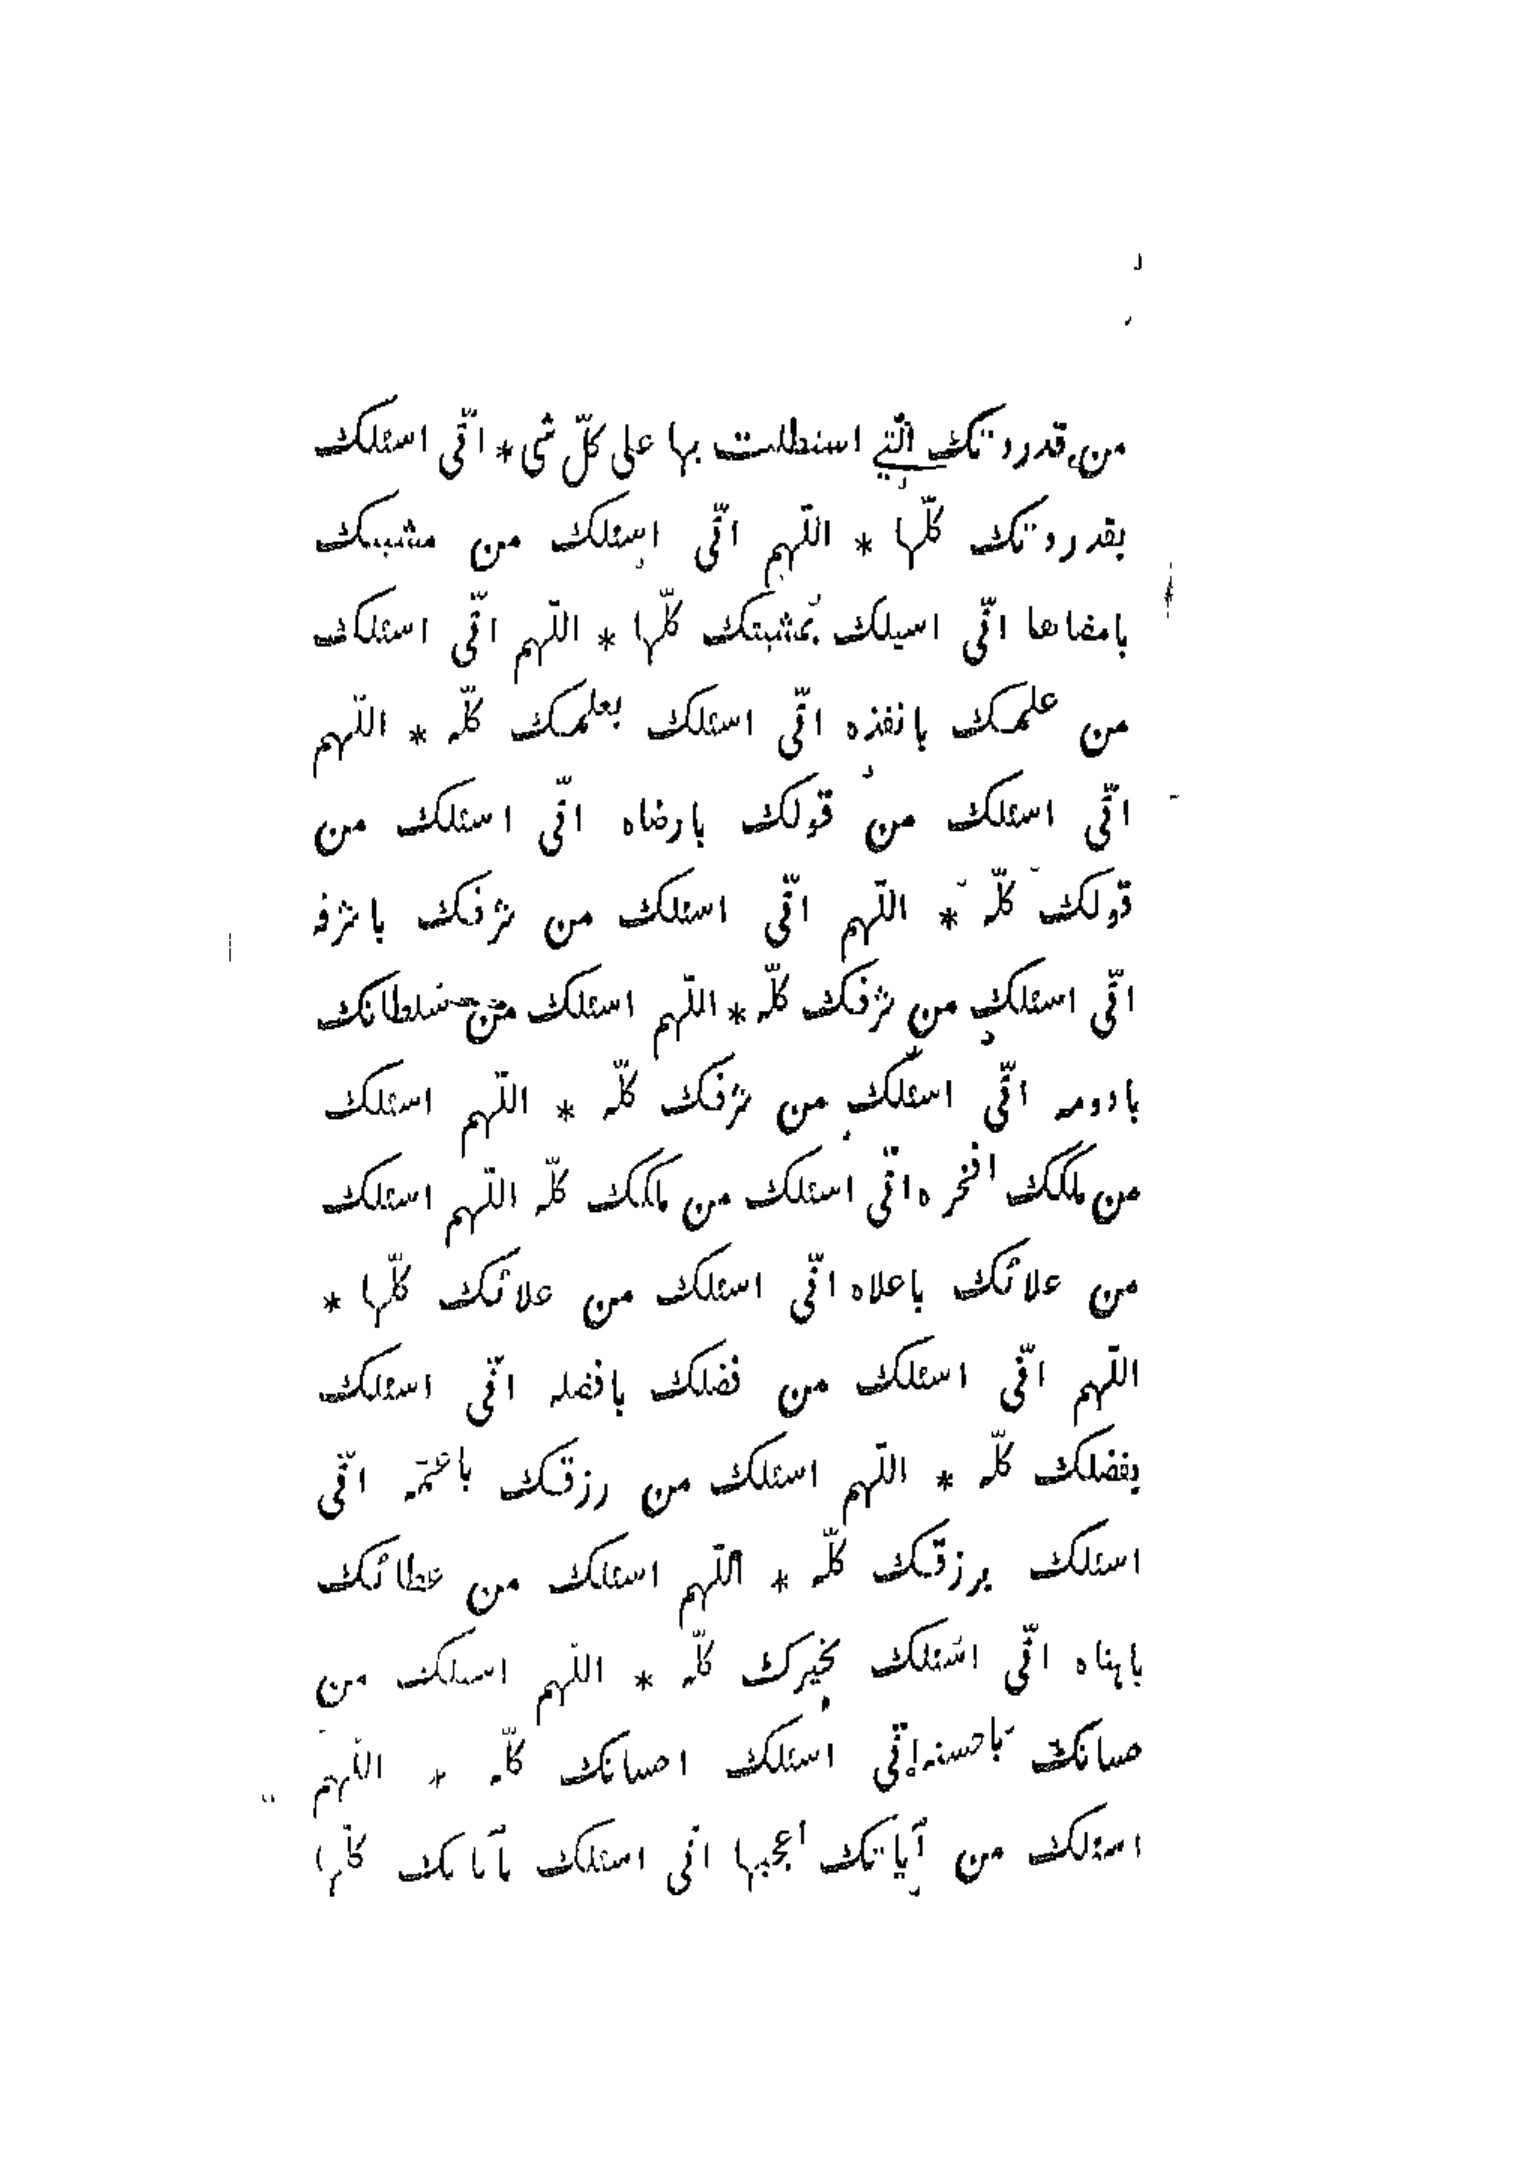 من قدردتك الّتي استطلت بها على كلّ شى * انّى اسئلك
بقدردتك كلّها * اللّهم انّى اسئلك من مشيتك
بامضاها انّى اسيلك بمشيتك كلّها * اللّهم انّى اسئلك
من علمك بانفذه انّى اسئلك بعلمك كلّه * اللّهم
انّى اسئلك من قولك بارضاه انّى اسئلك من
قولك كلّه * اللّهم انّى اسئلك من شرفك باشرفه
انّى اسئلك من شرفك كلّه * اللّهم اسئلك من سلطانك
بادومه انّى اسئلك من شرفك كلّه * اللّهم اسئلك
من ملكك افخره انّى اسئلك من ملكك كلّه اللّهم اسئلك
من علائك باعلاه انّى اسئلك من علائك كلّها *
اللّهم انّى اسئلك من فضلك بافضله انّى اسئلك
بفضلك كلّه * اللّهم اسئلك من رزقك باعمّه انّى
اسئلك برزقك كلّه * اللّهم اسئلك من عطائك
باهناه انّى اسئلك بخيرك كلّه * اللّهم اسئلك من
حسانك باحسنه انّى اسئلك احسانك كلّه * اللّهم
اسئلك من آياتك اعجبها انّى اسئلك بآياتك كلّها